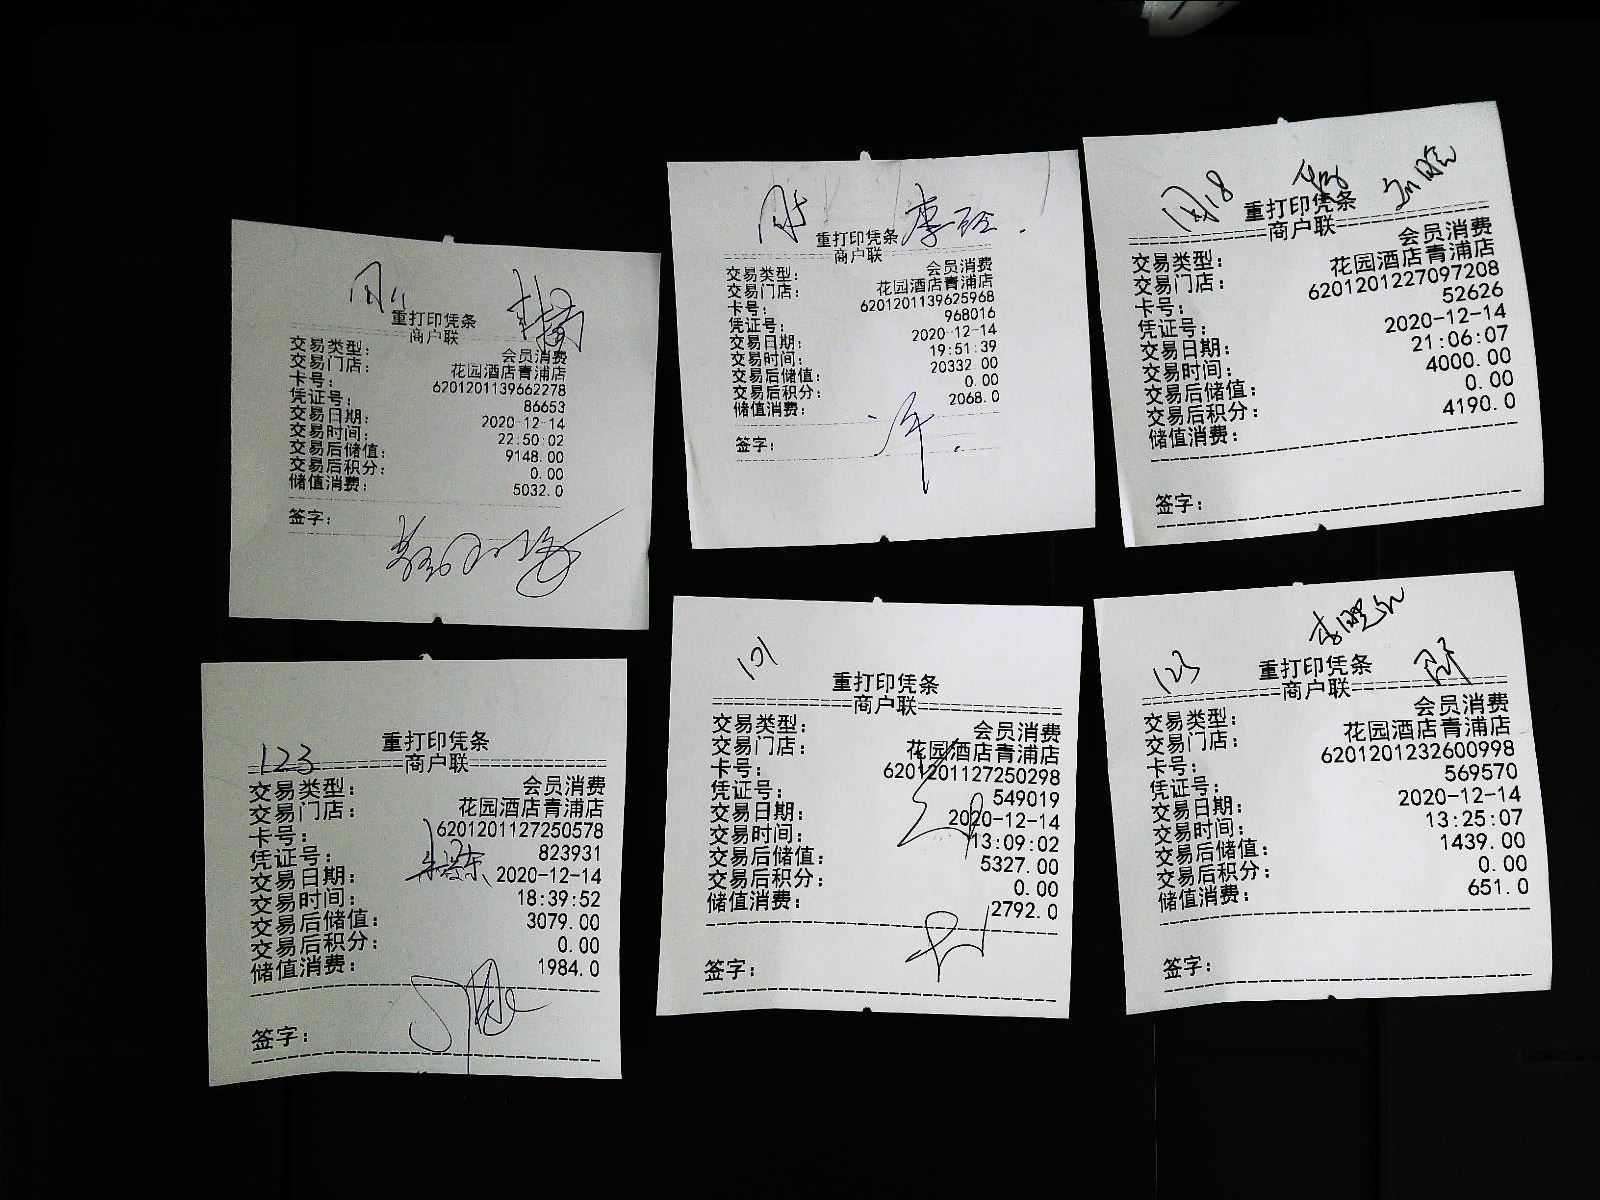 重打印凭条
商户联
交易类型： 会员消费
交易门店： 花园酒店青浦店
卡号： 6201201139662278
凭证号： 86653
交易日期： 2020-12-14
交易时间： 22:50:02
交易后储值： 9148.00
交易后积分： 0.00
储值消费： 5032.0
签字：
李
重打印凭条
商户联
交易类型： 会员消费
交易门店： 花园酒店青浦店
卡号： 6201201139625968
凭证号： 968016
交易日期： 2020-12-14
交易时间： 19:51:39
交易后储值： 20332.00
交易后积分： 0.00
储值消费： 2068.0
签字：
重打印凭条
==========商户联==========
交易类型： 会员消费
交易门店： 花园酒店青浦店
卡号： 6201201227097208
凭证号： 52626
交易日期： 2020-12-14
交易时间： 21:06:07
交易后储值： 4000.00
交易后积分： 0.00
储值消费： 4190.0
签字：
123
重打印凭条
==========商户联==========
交易类型： 会员消费
交易门店： 花园酒店青浦店
卡号： 6201201127250578
凭证号： 823931
交易日期： 2020-12-14
交易时间： 18:39:52
交易后储值： 3079.00
交易后积分： 0.00
储值消费： 1984.0
签字：
101
重打印凭条
==========商户联==========
交易类型： 会员消费
交易门店： 花园酒店青浦店
卡号： 6201201127250298
凭证号： 549019
交易日期： 2020-12-14
交易时间： 13:09:02
交易后储值： 5327.00
交易后积分： 0.00
储值消费： 2792.0
签字：
123
重打印凭条
==========商户联==========
交易类型： 会员消费
交易门店： 花园酒店青浦店
卡号： 6201201232600998
凭证号： 569570
交易日期： 2020-12-14
交易时间： 13:25:07
交易后储值： 1439.00
交易后积分： 0.00
储值消费： 651.0
签字：